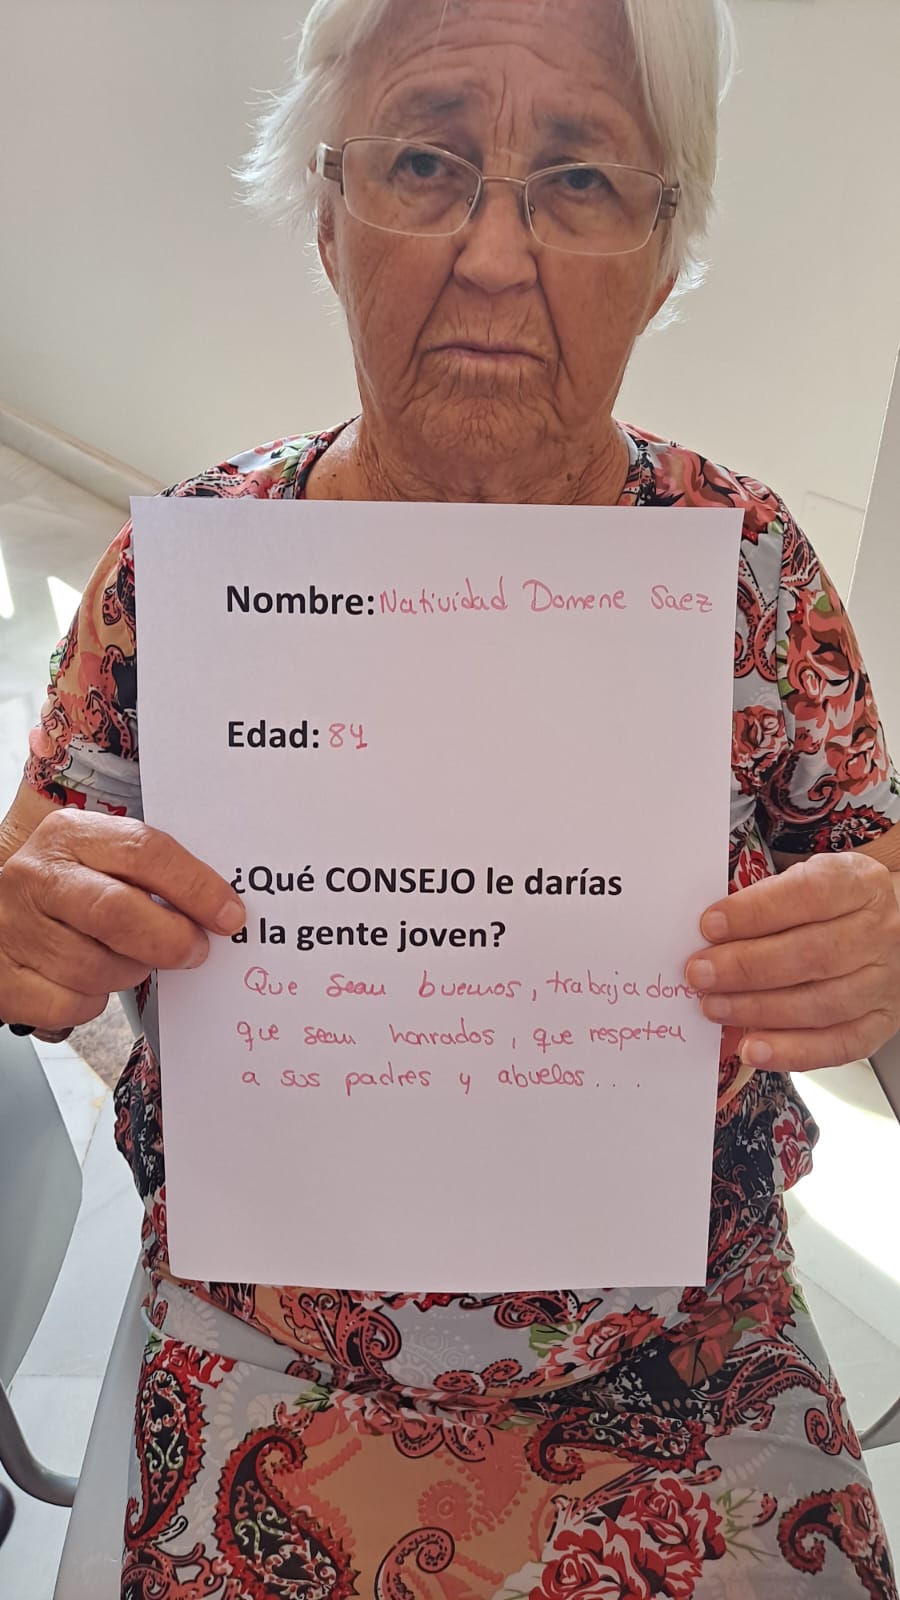 Nombre: Natividad Domene Saez
Edad: 84
¿Qué CONSEJO le darías
a la gente joven?
Que sean buenos, trabajadores
que sean honrados, que respeten
a sus padres y abuelos....